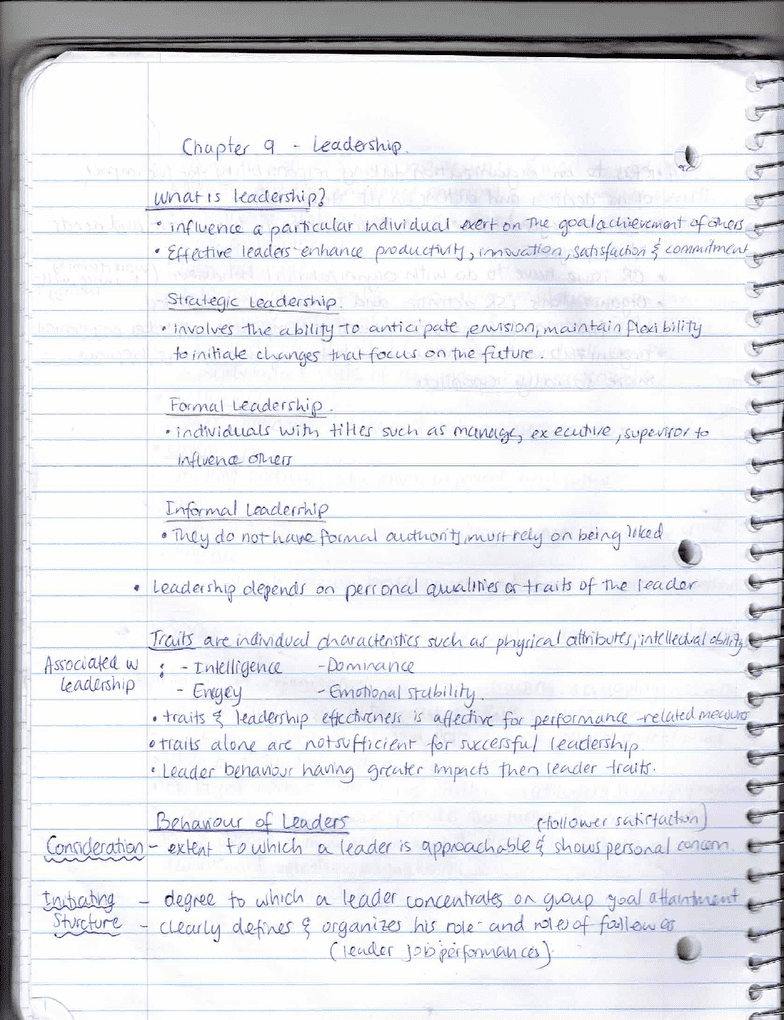 Chapter 9 - Leadership.
What is leadership?
• influence a particular individual exert on the goal achievement of others
• Effective leaders enhance productivity, innovation, satisfaction & commitment
Strategic Leadership.
• involves the ability to anticipate, envision, maintain flexibility
to initiate changes that focus on the future.
Formal Leadership.
• individuals with titles such as manage, executive, supervisor to
influence others
Informal Leadership
• They do not have formal authority, must rely on being liked
• Leadership depends on personal qualities or traits of the leader
Traits are individual characteristics such as physical attributes, intellectual ability
Associated w : - Intelligence - Dominance
leadership - Energy - Emotional stability.
• traits & leadership effectiveness is affective for performance-related measures
• traits alone are not sufficient for successful leadership
• Leader behaviour having greater impacts then leader traits.
Behaviour of Leaders (follower satisfaction)
Consideration - extent to which a leader is approachable & shows personal concern.
Initiating - degree to which a leader concentrates on group goal attainment
Sturcture - clearly defines & organizes his role and roles of followers
(leader job performances).